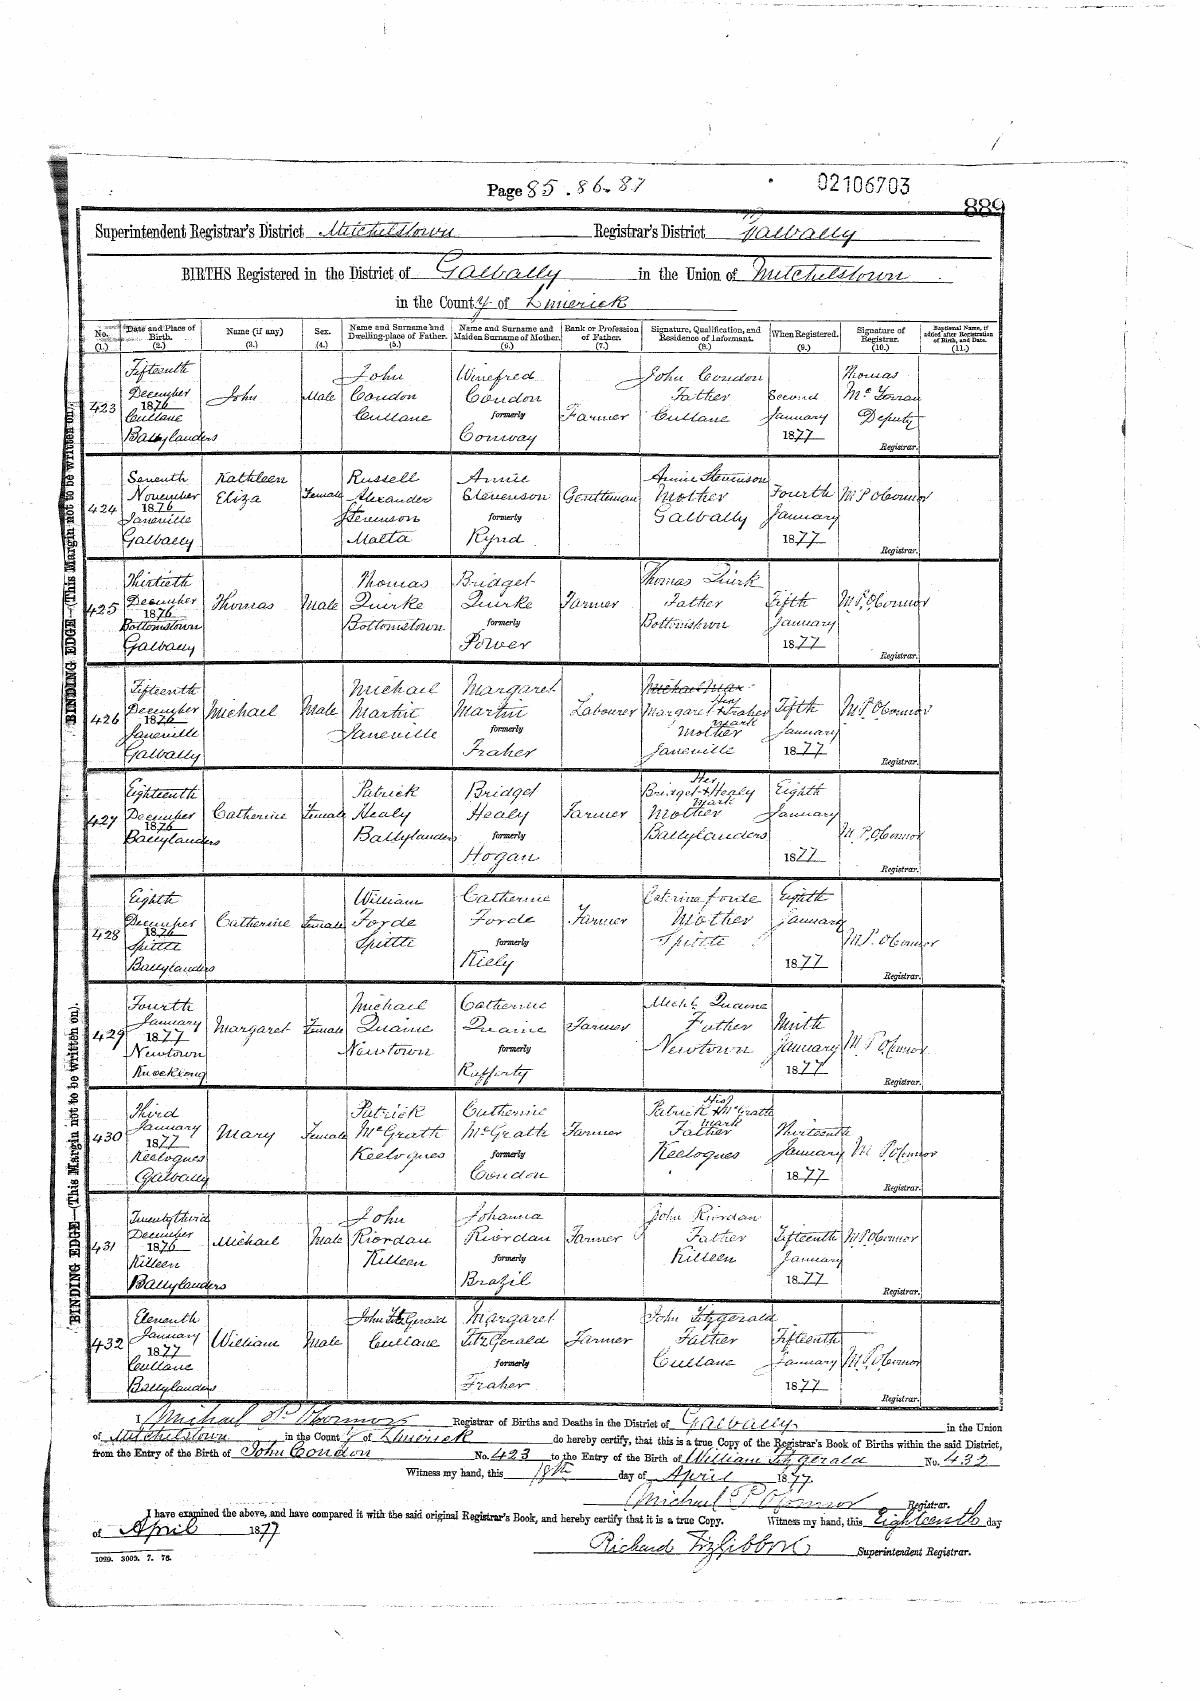 Page 85. 86. 87
02106703
889
Superintendent Registrar's District Mitchelstown Registrar's District Galbally
BIRTHS Registered in the District of Galbally in the Union of Mitchelstown
in the County of Limerick
No. (1.) Date and Place of Birth. (2.) Name (if any) (3.) Sex. (4.) Name and Surname and Dwelling-place of Father. (5.) Name and Surname and Maiden Surname of Mother. (6.) Rank or Profession of Father. (7.) Signature, Qualification, and Residence of Informant. (8.) When Registered. (9.) Signature of Registrar. (10.) Baptismal Name, if added after Registration of Birth, and Date. (11.)
423 Fifteenth December 1876 Cullane Ballylanders John Male John Condon Cullane Winefred Condon formerly Conway Farmer John Condon Father Cullane Second January 1877 Thomas Deputy Registrar.
424 Seventh November 1876 Janeville Galbally Kathleen Eliza Female Russell Alexander Stevenson Malta Annie Stevenson formerly Rynd Gentleman Annie Stevenson Mother Galbally Fourth January 1877 M P O'Connor Registrar.
425 Thirtieth December 1876 Bottomstown Galbally Thomas Male Thomas Quirke Bottomstown Bridget Quirke formerly Power Farmer Thomas Quirk Father Bottomstown Fifth January 1877 M. P. O'Connor Registrar.
426 Fifteenth December 1876 Janeville Galbally Michael Male Michael Martin Janeville Margaret Martin formerly Fraher Labourer Margaret her x mark Fraher Mother Janeville Fifth January 1877 M. P. O'Connor Registrar.
427 Eighteenth December 1876 Ballylanders Catherine Female Patrick Healy Ballylanders Bridget Healy formerly Hogan Farmer Bridget Her x mark Healy Mother Ballylanders Eighth January 1877 M. P. O'Connor Registrar.
428 Eighth December 1876 Spittle Ballylanders Catherine Female William Forde Spittle Catherine Forde formerly Kiely Farmer Caterine forde Mother Spittle Eighth January 1877 M P. O'Connor Registrar.
429 Fourth January 1877 Newtown Knocklong Margaret Female Michael Quaine Newtown Catherine Quaine formerly Rafferty Farmer Michl. Quaine Father Newtown Ninth January 1877 M. P O'Connor Registrar.
430 Third January 1877 Keeloques Galbally Mary Female Patrick McGrath Keeloques Catherine McGrath formerly Condon Farmer Patrick His x mark McGrath Father Keeloques Thirteenth January 1877 M P O'Connor Registrar.
431 Twenty third December 1876 Killeen Ballylanders Michael Male John Riordan Killeen Johanna Riordan formerly Brazil Farmer John Riordan Father Killeen Fifteenth January 1877 M. P. O'Connor Registrar.
432 Eleventh January 1877 Cullane Ballylanders William Male John FitzGerald Cullane Margaret FitzGerald formerly Fraher Farmer John Fitzgerald Father Cullane Fifteenth January 1877 M. P. O'Connor Registrar.
BINDING EDGE—(This Margin not to be written on).
BINDING EDGE—(This Margin not to be written on).
I Michael P. O'Connor Registrar of Births and Deaths in the District of Galbally in the Union
of Mitchelstown in the County of Limerick do hereby certify, that this is a true Copy of the Registrar's Book of Births within the said District,
from the Entry of the Birth of John Condon No. 423 to the Entry of the Birth of William Fitzgerald No. 432
Witness my hand, this 18th day of April 1877.
Michael P O'Connor Registrar.
I have examined the above, and have compared it with the said original Registrar's Book, and hereby certify that it is a true Copy. Witness my hand, this Eighteenth day
of April 1877
Richard FitzGibbon Superintendent Registrar.
1029. 3003. 7. 76.